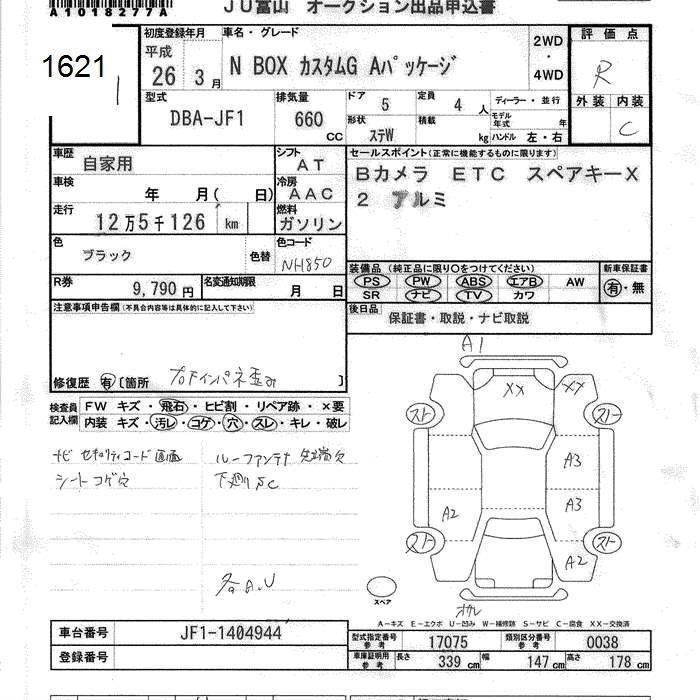 A1018277A
JU富山 オークション出品申込書
1621
初度登録年月 車名・グレード 評価点
平成 26 3月 N BOX カスタムG Aパッケージ 2WD ・ 4WD R
型式 排気量 ドア 5 定員 4人 ディーラー・並行 外装 内装
DBA-JF1 660 CC 形状 ステW 積載 kg モデル年式 年 ハンドル 左・右 C
車歴 自家用 シフト AT セールスポイント(正常に機能するものに限ります)
車検 年 月( 日) 冷房 AAC Bカメラ ETC スペアキーX
走行 12万5千126 km 燃料 ガソリン 2 アルミ
色 ブラック 色替 色コード NH850
装備品 (純正品に限り○をつけてください) 新車保証書
R券 9,790円 名変通知期限 月 日 PS PW ABS エアB AW 有・無
SR ナビ TV カワ
注意事項申告欄(不具合内容等は具体的に記入して下さい) 後日品 保証書・取説・ナビ取説
修復歴 有〔箇所 〕
検査員記入欄 FW キズ・飛石・ヒビ割・リペア跡・×要
内装 キズ・汚レ・コゲ・穴・スレ・キレ・破レ
ナビ セキュリティコード画面 ルーフアンテナ
シートコゲ穴 下廻りSC
各A.U
A1
XX XX
A3
A3
A2
A2
スペア
A-キズ E-エクボ U-凹み W-補修跡 S-サビ C-腐食 XX-交換済
車台番号 JF1-1404944 型式指定番号参考 17075 類別区分番号参考 0038
登録番号 車庫証明用参考 長さ 339 cm 幅 147 cm 高さ 178 cm